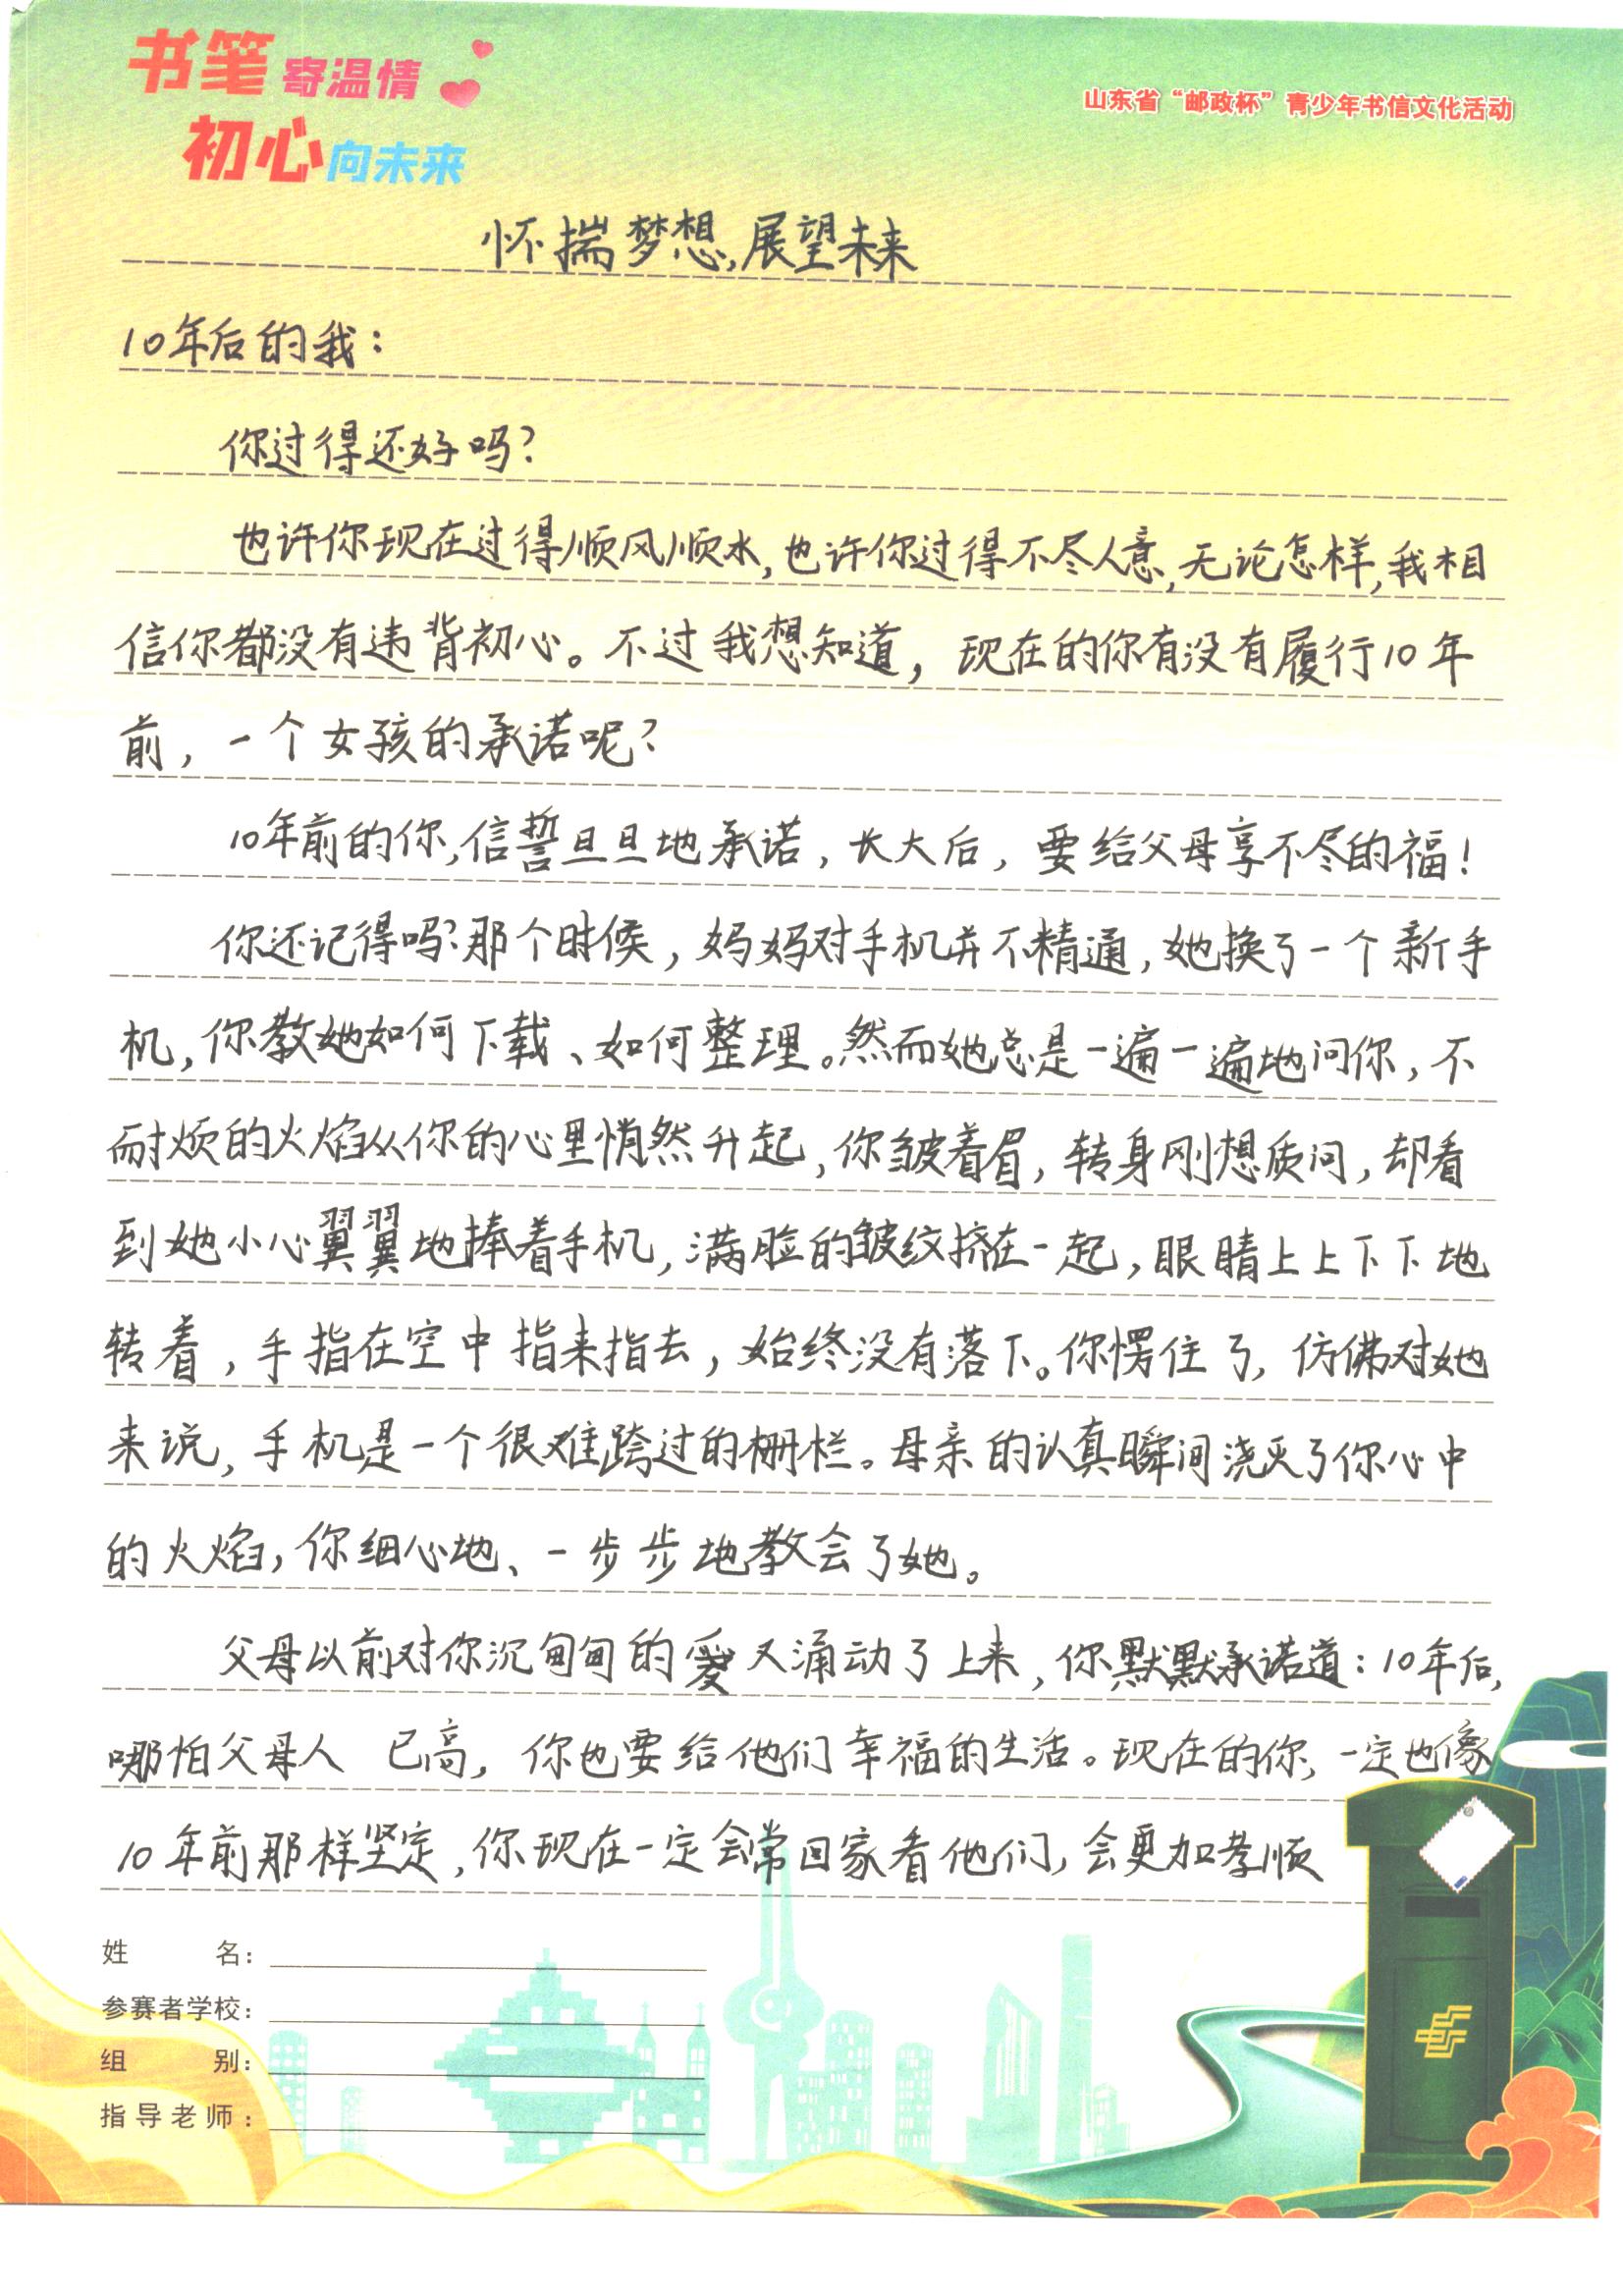 书笔寄温情
初心向未来
山东省“邮政杯”青少年书信文化活动
怀揣梦想,展望未来
10年后的我：
你过得还好吗?
也许你现在过得顺风顺水,也许你过得不尽人意,无论怎样,我相
信你都没有违背初心。不过我想知道，现在的你有没有履行10年
前，一个女孩的承诺呢?
10年前的你,信誓旦旦地承诺，长大后，要给父母享不尽的福!
你还记得吗?那个时候，妈妈对手机并不精通,她换了一个新手
机,你教她如何下载、如何整理。然而她总是一遍一遍地问你，不
耐烦的火焰从你的心里悄然升起,你皱着眉，转身刚想质问,却看
到她小心翼翼地捧着手机,满脸的皱纹挤在一起,眼睛上上下下地
转着，手指在空中指来指去，始终没有落下。你愣住了,仿佛对她
来说,手机是一个很难跨过的栅栏。母亲的认真瞬间浇灭了你心中
的火焰,你细心地、一步步地教会了她。
父母以前对你沉甸甸的爱又涌动了上来,你默默承诺道：10年后,
哪怕父母人 已高,你也要给他们幸福的生活。现在的你,一定也像
10年前那样坚定,你现在一定会常回家看他们,会更加孝顺
姓 名：
参赛者学校：
组 别：
指导老师：